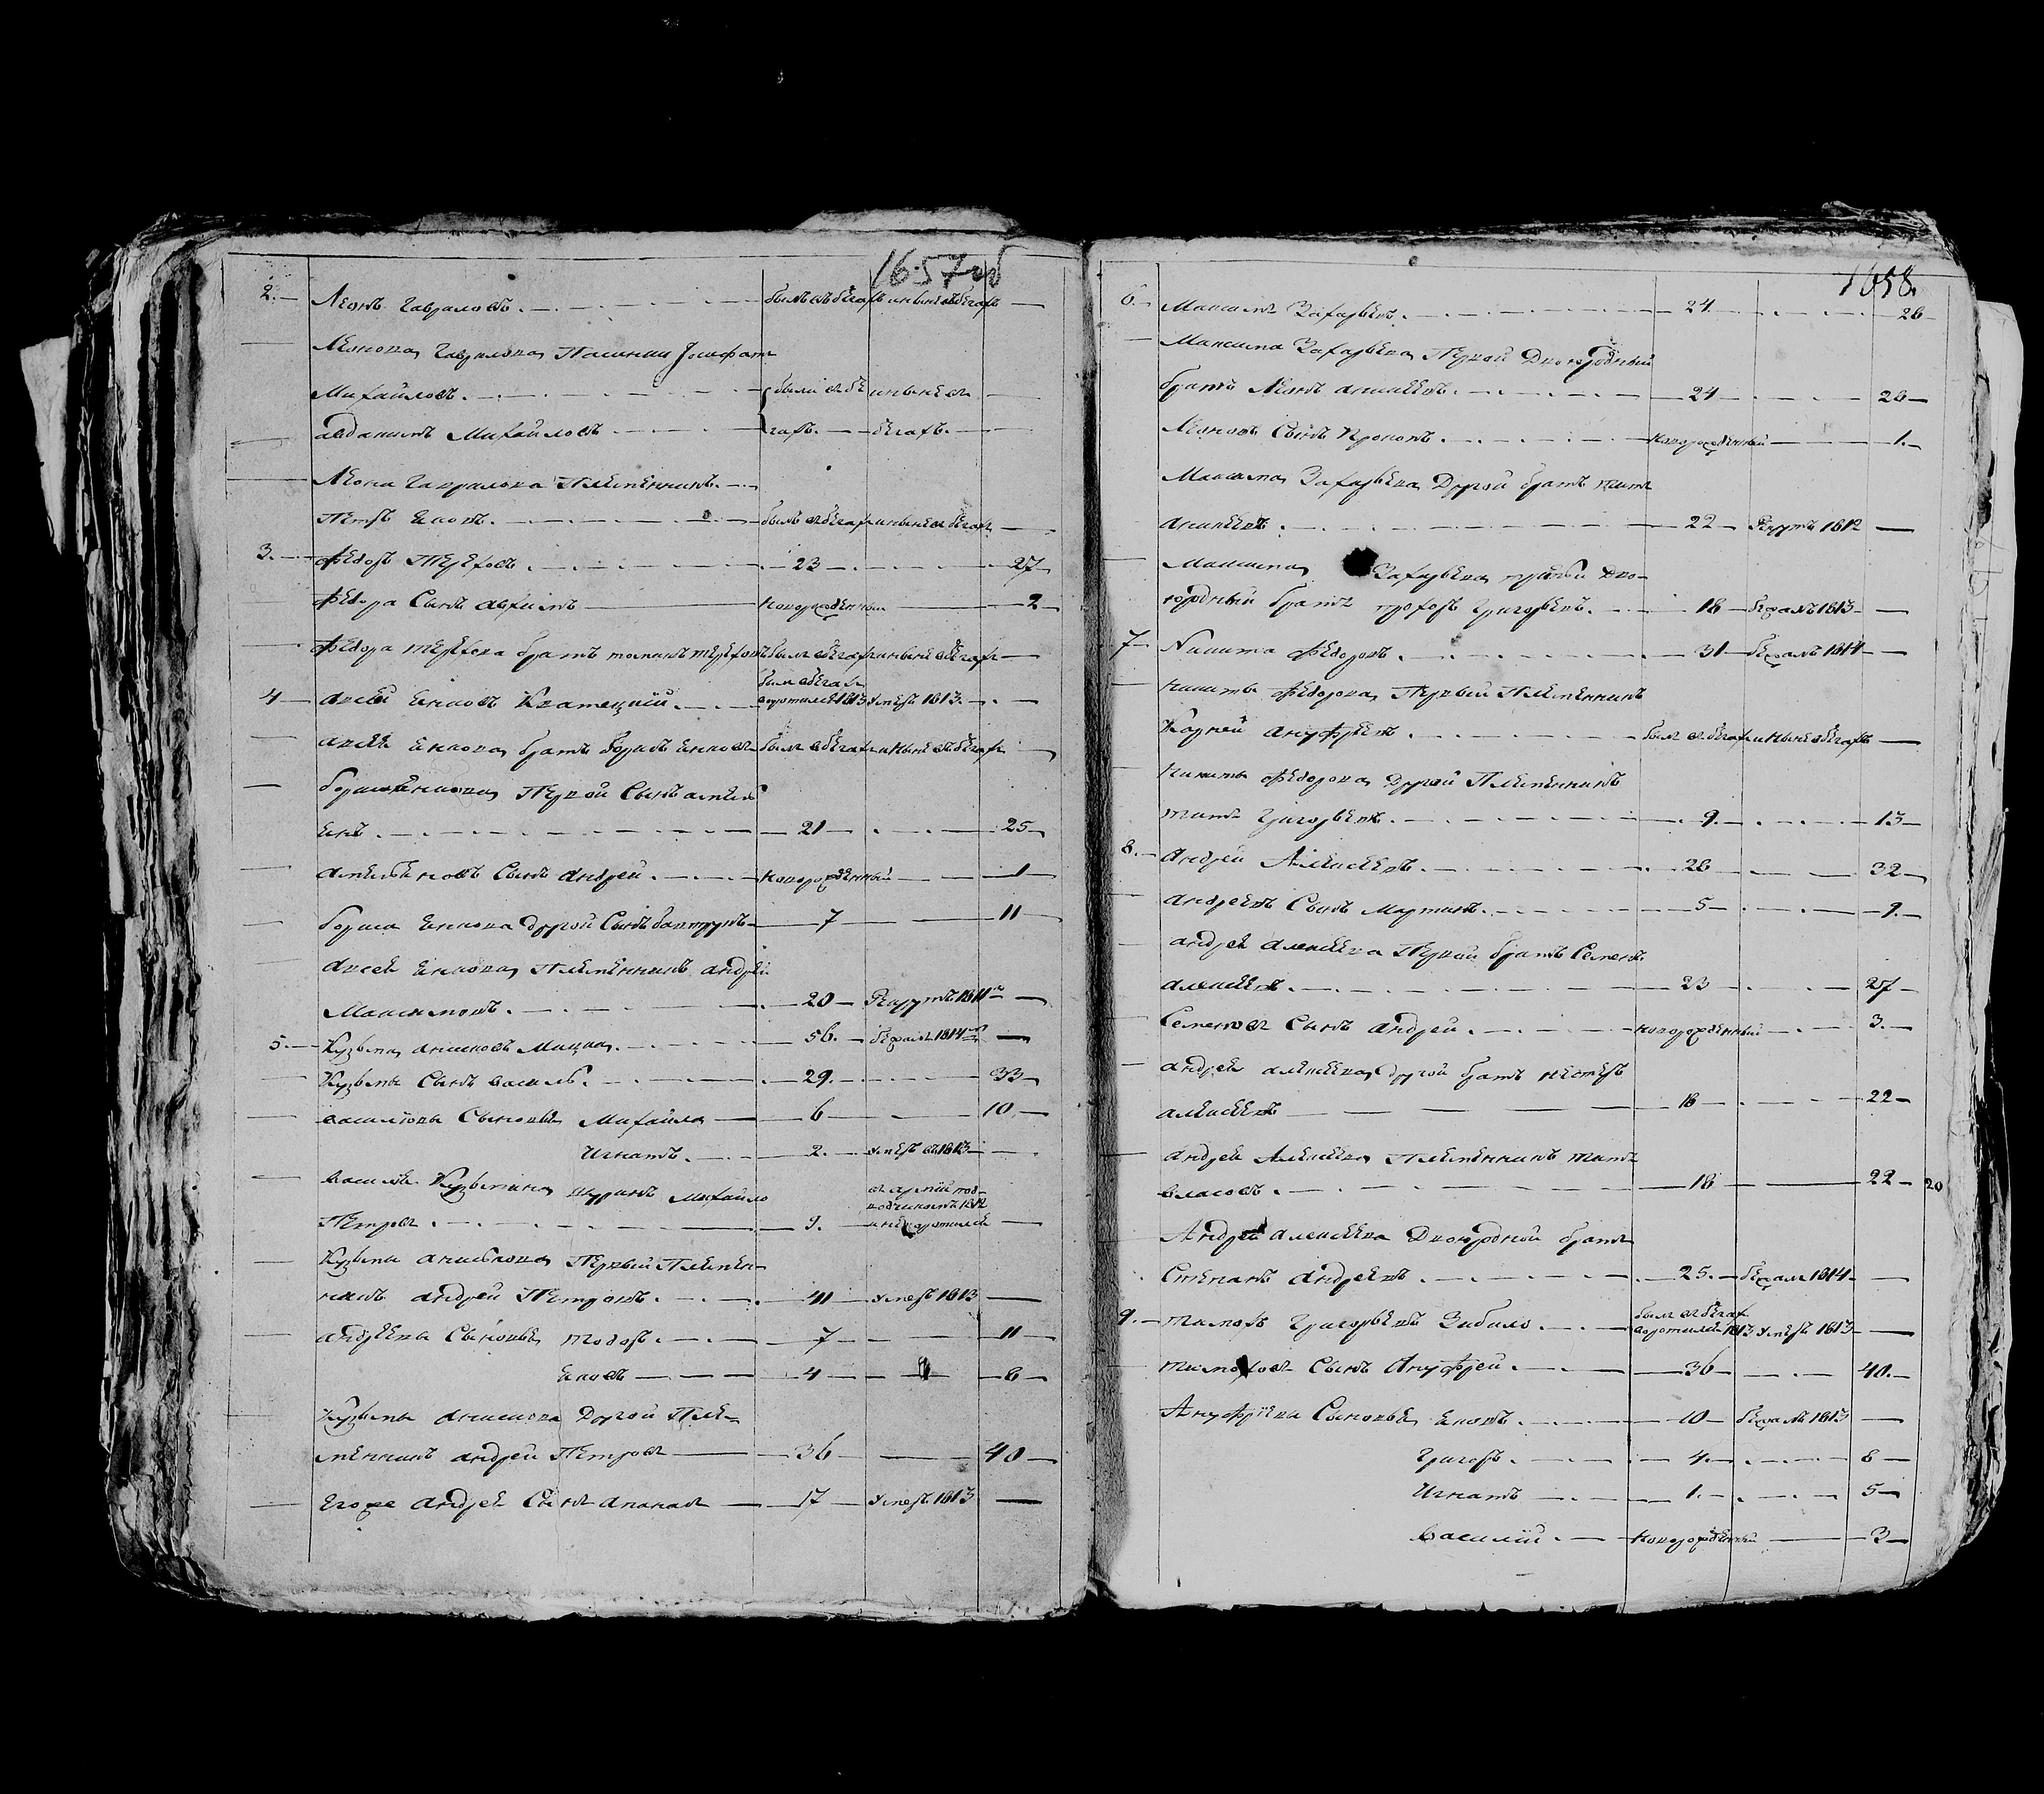 1657об
2. Леонъ Гавриловъ. былъ въ бѣгахъ и нынѣ въ бѣгахъ —
Леона Гаврилова Пасынки Іосифатъ
Михайловъ. были въ бѣ и нынѣ въ —
Авдакимъ Михайловъ гахъ. — бѣгахъ. —
Леона Гаврилова Племѣнникъ.
Петръ Яковъ. былъ въ бѣгахъ и нынѣ въ бѣгахъ —
3. Федоръ Терехов. 23 — 27
Федора Сынъ Авхимъ новорожденный 2
Федора Терехова братъ Терехов былъ в бѣгахъ и нынѣ в бѣгахъ —
4 Авсей Яковъ былъ в бѣгах
воротился 1813 Умеръ 1813. —
Авсея Якова братъ Борисъ Яковъ былъ в бѣгах и нынѣ в бѣгах —
Бориса Якова Первой Сынъ Амель
янъ. 21 — 25
Амельяновъ Сынъ Андрей. новорожденный — 1
Бориса Якова Другой Сынъ 7 — 11
Авсея Якова Племѣнникъ Андрей
Максимовъ. 20 — Рекрутъ 1811го —
5. Кузьма Анисковъ 56. — бѣжалъ 1814го —
Кузьмы Сынъ Василь. 29. — 33
Васильовы Сыновья Михайла 6 — 10
Игнатъ. 2. — Умеръ въ 1813 —
Василья Кузьмина шуринъ Михайло в армій под
водчикомъ 1812
Петровъ. 9. и неворотился —
Кузьмы Анискова Первый Племѣн
никъ Андрей Петровъ. 41 — Умеръ 1813 —
Андрѣевы Сыновья Тодоръ. 7 — 11
Яковъ 4 — 8
Кузьмы Анискова Другой Пле-
мѣнникъ Андрей Петровъ 36 — 40
Егоже Андрея Сынъ Апанасъ 17 — Умеръ 1813 —
1658.
6. Максимъ Захарьевъ. 24 — 28
Максима Захарьева Первой Двоюродный
братъ Леонъ Аникѣевъ. 24 — 28
Леоновъ Сынъ Прокопъ. новорожденный — 1.
Максима Захарьева Другой братъ Титъ
Аникѣевъ. 22 — Рекрутъ 1812 —
Максима Захарьева третьи Дво-
юродный братъ Прохоръ Григорьевъ. 18 — бѣжалъ 1813 —
7 Никита Федоровъ. 31 — бѣжалъ 1814 —
Никиты Федорова Первый Племѣнникъ
Карней Ануфрѣевъ. былъ в бѣгах и нынѣ в бѣгахъ —
Никиты Федорова Другой Племѣнникъ
Титъ Григорьевъ. 9. — 13
8. Андрей Алексѣевъ. 28 — 32
Андреевъ Сынъ Мартинъ. 5 — 9.
Андрея Алексѣева Первой братъ Семенъ
Алексѣевъ. 23 — 27
Семеновъ Сынъ Андрей. новорожденный — 3.
Андрея Алексѣева Другой братъ Нестеръ
Алексѣевъ 18 — 22
Андрея Алексѣева Племѣнникъ Титъ
Власовъ. 18 — 22 20
Андрея Алексѣева Двоюродной братъ
Степанъ Андреевъ. 25. — бѣжалъ 1814 —
9. Тимохъ Григорьевъ Забило. былъ в бѣгах
воротился 1813 Умеръ 1813 —
Тимоховъ Сынъ Ануфрей. 36 — 40.
Ануфрѣевы Сыновья Яковъ. 10 — бѣжалъ 1813 —
Григоръ. 4. — 8
Игнатъ 1. — 5
Василій. новорожденный — 3